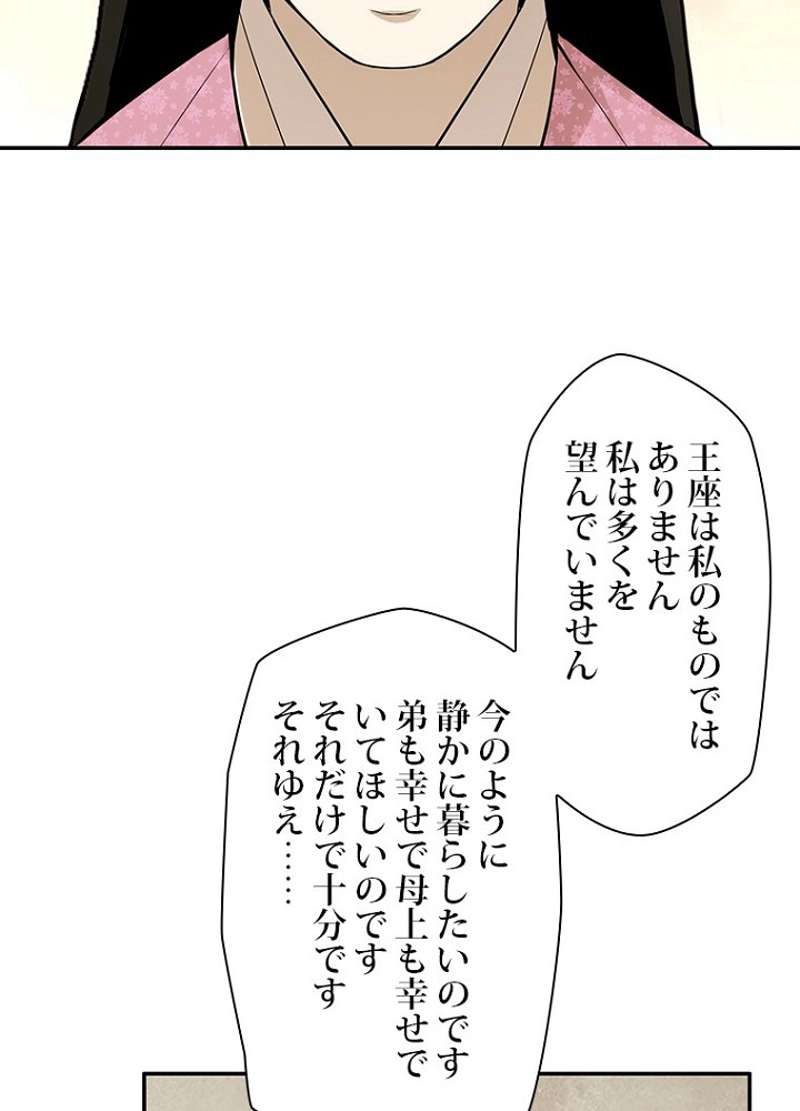 王座は私のものでは
ありません
私は多くを
望んでいません
今のように
静かに暮らしたいのです
弟も幸せで母上も幸せで
いてほしいのです
それだけで十分です
それゆえ……